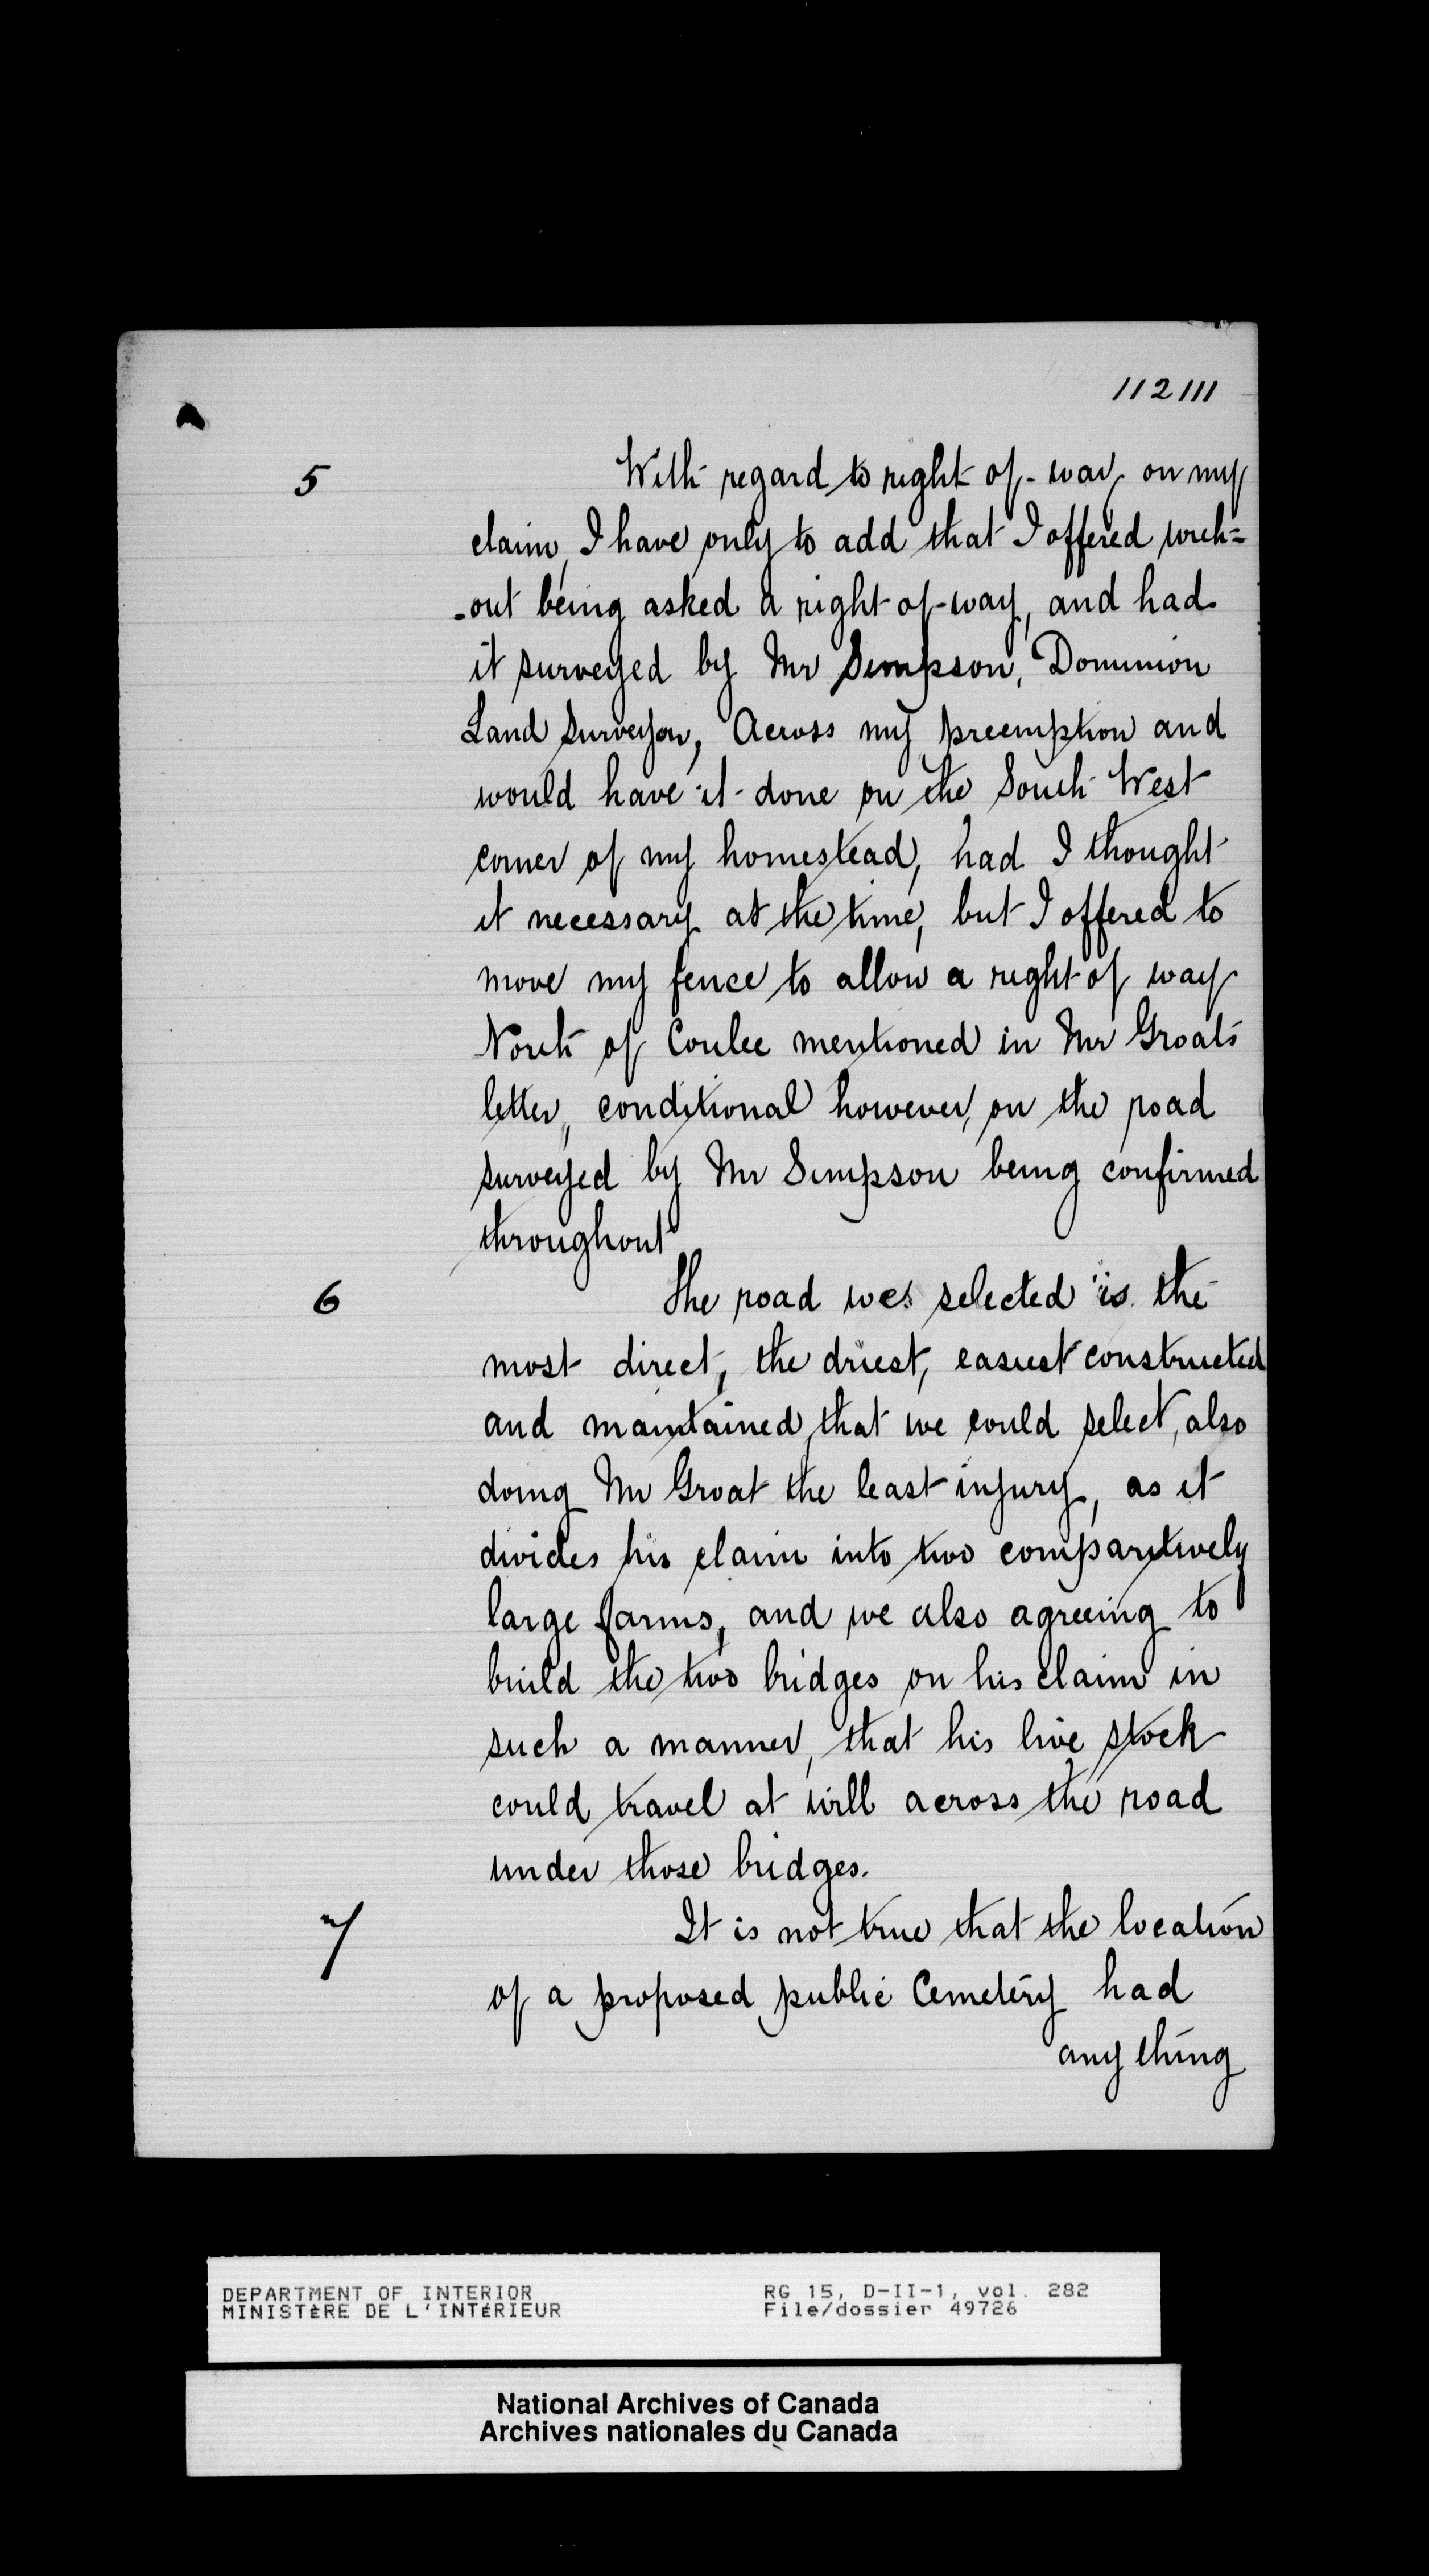 112111
5
With regard to right of-way on my
claim, I have only to add that I offered with=
-out being asked a right of-way, and had
it surveyed by Mr Simpson, Dominion
Land Surveyor, Across my preemption and
would have it done on the South West
corner of my homestead, had I thought
it necessary at the time, but I offered to
move my fence to allow a right of way
North of Coulee mentioned in Mr Groat's
letter, conditional however, on the road
surveyed by Mr Simpson being confirmed
throughout
6
The road we selected is the
most direct, the driest, easiest constructed
and maintained, that we could select, also
doing Mr Groat the least injury, as it
divides his claim into two comparitively
large farms, and we also agreeing to
build the two bridges on his claim in
such a manner, that his live stock
could travel at will across the road
under those bridges.
7
It is not true that the location
of a proposed public Cemetery had
any thing
DEPARTMENT OF INTERIOR
MINISTÈRE DE L'INTÉRIEUR
RG 15, D-II-1, vol. 282
File/dossier 49726
National Archives of Canada
Archives nationales du Canada